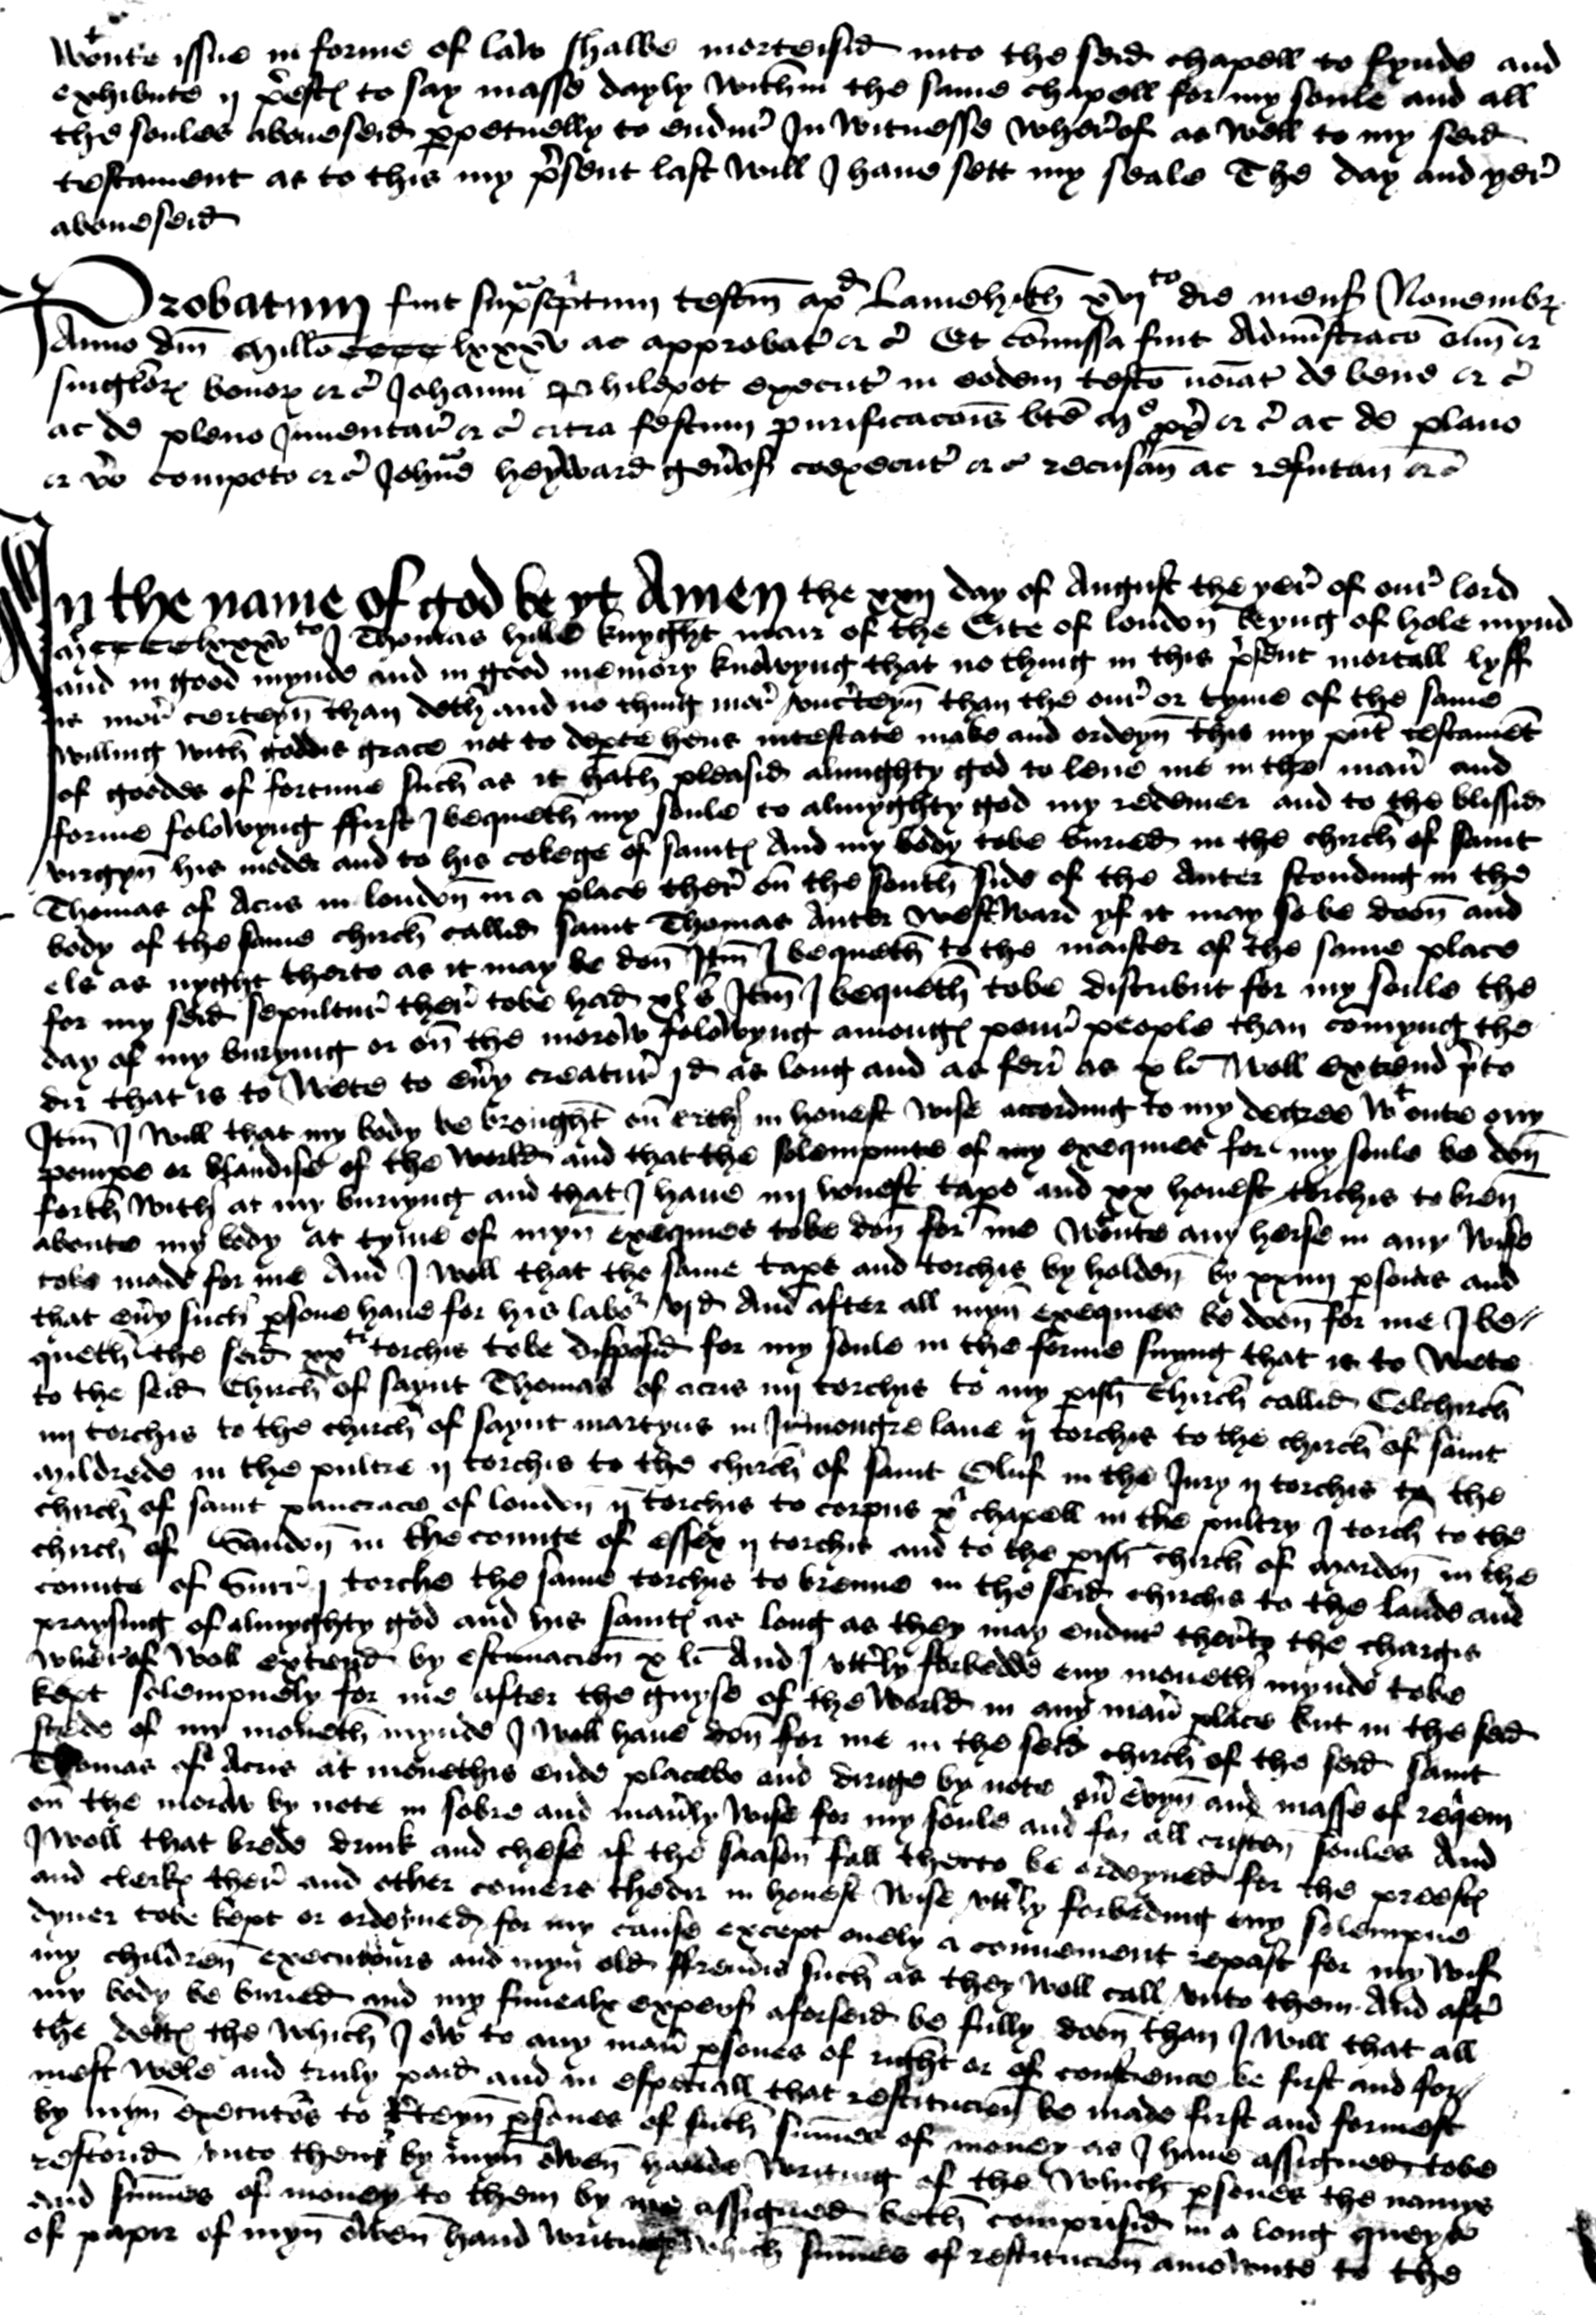 wtoute issue in forme of law shalbe morteisid into the seid chapell to fynde and
exhibute ij p̃estꝭ to say masse dayly within the same chapell for my soule and all
the soules aboueseid ꝑpetuelly to endur̃ In witnesse wher̃of as well to my seid
testament as to this my p̃sent last will I haue sett my seale The day and yer̃
aboueseid
Probatum fuit sup̃ascptum testm̃ apd Lamehith xvjto die mensꝭ Nouembrꝭ
Anno dm̃ Millõ cccc lxxxv ac approbat̃ &c̃ Et com̃issa fuit Adm̃straco õim &
singlorꝝ bonorꝝ &c̃ Johanni Philpot execut̃ in eodem testõ noĩat̃ de bene &c̃
ac de pleno Inuentar̃ &c̃ citra festum purificacoĩs bt̃e M̃e xp̃ &c̃ ac de plano
& vo compoto &c̃ Johne heyward gen̾osꝭ coexecut̃ &c̃ recusan̄ ac refutan̄ &c̃
In the name of god be yt Amen the xxij day of August the yer̃ of our̃ lord
Mcccclxxxvto I Thomas hille knyght mair of the Cite of london̄ beyng of hole mynd
and in good mynde and in good memory knowyng that no thing in this p̃sent mortall lyff
is mor̃ certeyn̄ than deth and no thing mor̃ vnc̃teyn̄ than the our̃ or tyme of the same
willing with goddis grace not to dep̱te hens intestate make and ordeyn̄ this my pñt testamẽt
of goodes of fortune such as it hath pleasid almighty god to lene me in the man̾ and
forme folowyng ffirst I bequeth my soule to almyghty god my redemer and to the blissid
virgyn̄ his moder and to his colege of saintꝭ And my body tobe buried in the chirch of saint
Thomas of Acris in london̄ in a place ther̃ on̄ the south side of the Auter stonding in the
body of the same chirch callid saint Thomas Auter westward yf it may so be doon̄ and
els as nyght therto as it may be don̄ Itm̃ I bequeth to the maister of the same place
for my seid sepultur̃ ther̃ tobe had xl s̃ Itm̃ I bequeth tobe distribut for my soule the
day of my burying or on̄ the morow folowyng amongꝭ pour̃ people than comyng the
dir that is to wete to eu̾y creatur̃ j d as long and as ferr̃ as x li woll extend p̃to
Itm̃ I will that my body be brought on̄ erth in honest wise according to my degree wtoute ony
pompe or blandise of the world and that the solempnite of my exequies for my soule be don̄
forth with at my buryyng and that I haue iiij honest tape and xx honest torchis to bren̄
aboute my body at tyme of myn̄ exequies tobe don̄ for me wtoute any herse in any wise
tobe made for me And I woll that the same tapꝭ and torchis by holden̄ by xxiiij ꝑsones and
that eu̾y such ꝑsone haue for his labor vj d And after all myn̄ exequies be doon̄ for me I be//
queth the seid xxti torchis tobe disposid for my soule in the forme suyng that is to wete
to the seid Chirch of saynt Thomas of acris iiij torchis to my ꝑish chirch callid Colchirch
iiij torchis to the chirch of saynt martyns in Irmongre lane ij torchis to the chirch of saint
Mildrede in the pultre ij torchis to the chirch of saint Oluf in the Jury ij torchis to the
chirch of saint pancrace of london̄ ij torchis to corpus xp̃i chapell in the pultry j torch to the
chirch of Sandon̄ in the counte of essex ij torchis and to the ꝑish chirch of Mardon̄ in the
counte of Surr̃ j torche the same torchis to brenne in the seid chirchis to the laude and
praysing of almyghty god and his saintꝭ as long as they may endur̃ ther̃ty the chargis
wher̃of woll extend by estimacion̄ x li And I vtt̾ly forbedde eny moneth mynde tobe
kept solempnely for me after the guyse of the world in any man̾ place but in the seid
stede of my moneth mynde I woll haue don̄ for me in the seid chirch of the seid saint
Thomas of Acris at monethis ende placebo and dirige by note on̄ evyn̄ and masse of reqem
on̄ the morow by note in sobre and man̾ly wise for my soule and for all cristen̄ soules And
I woll that brede drink and chese if the saason̄ fall therto be ordeyned for the preestꝭ
and clerkꝭ ther̃ and other comers thedir in honest wise vtt̾ly forbeding eny solempne
dyner tobe kept or ordeyned for my cause except onely a conuenient repast for my wif
my children̄ executours and myn̄ old ffrendis such as they woll call vnto them And aft̾
my body be buried and my funealx expensꝭ aforseid be fully doon̄ than I will that all
the dettꝭ the which I ow to any man̾ ꝑsones of right or of conscience be first and for//
mest wele and truly paid and in especiall that restitucion̄ be made first and formest
by myn̄ executor̃s to c̃teyn̄ ꝑsones of such sum̃es of money as I haue assigned tobe
restorid vnto them by myn̄ owen̄ hande writing of the which ꝑsones the namys
and sum̃es of money to them by me assigned beth comprisid in a long queyre
of papir of myn̄ owen̄ hand writing which sum̃es of restitucion̄ amownte to the